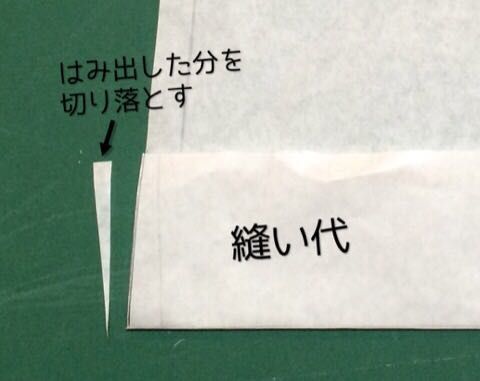 はみ出した分を
切り落とす
縫い代